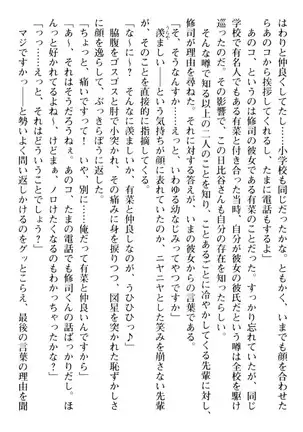 はわりと仲良くしてた……小学校も同じだったかな。ともかく、
らあのコから挨拶してくれるし、たまに電話もするよ」
あのコ、というのは修司の彼女である有菜のことだった。すっかり忘れていたが、同じ
学校で有名人でもある有菜と付き合った当時、自分が彼女の彼氏という噂は全校を駆け
巡ったのだ。その影響で、この日比谷さんも自分の存在を知ったらしい。
そんな噂で知る以上の二人のことを知り、ことあるごとに冷やかしてくる先輩に対し、
修司が理由を尋ねた。それに対する答えが、いまの彼女からの言葉である。
「そ、そうなんすか……えっと、いわゆる幼なじみってやつですか」
羨ましい――という気持ちが顔に表れていたのか、ニヤニヤとした笑みを崩さない先輩
が、そのことを直接的に指摘してくる。
「な～に～？　そんなに羨ましいか、有菜と仲良しなの、うひひひっ♪」
脇腹をゴスゴスと肘で小突かれ、その痛みに身体を捩りつつ、図星を突かれた恥ずかしさ
に顔を逸らして、ぶっきらぼうに返す。
「ちょっと、痛いですって！　いや、別に……俺だって有菜と仲良いんですから」
「あ～、それはそうだろうねぇ。あのコ、たまの電話でも修司くんの話ばっかりだし。ほ
んっと好かれてるよね～、けどまぁ、ノロけたくなるのもわかっちゃったかな？」
「っ……えっと、それはどういうことでしょう？」
マジですかっ――と勢いよく問い返しかけるのをグッとこらえ、最後の言葉の理由を聞